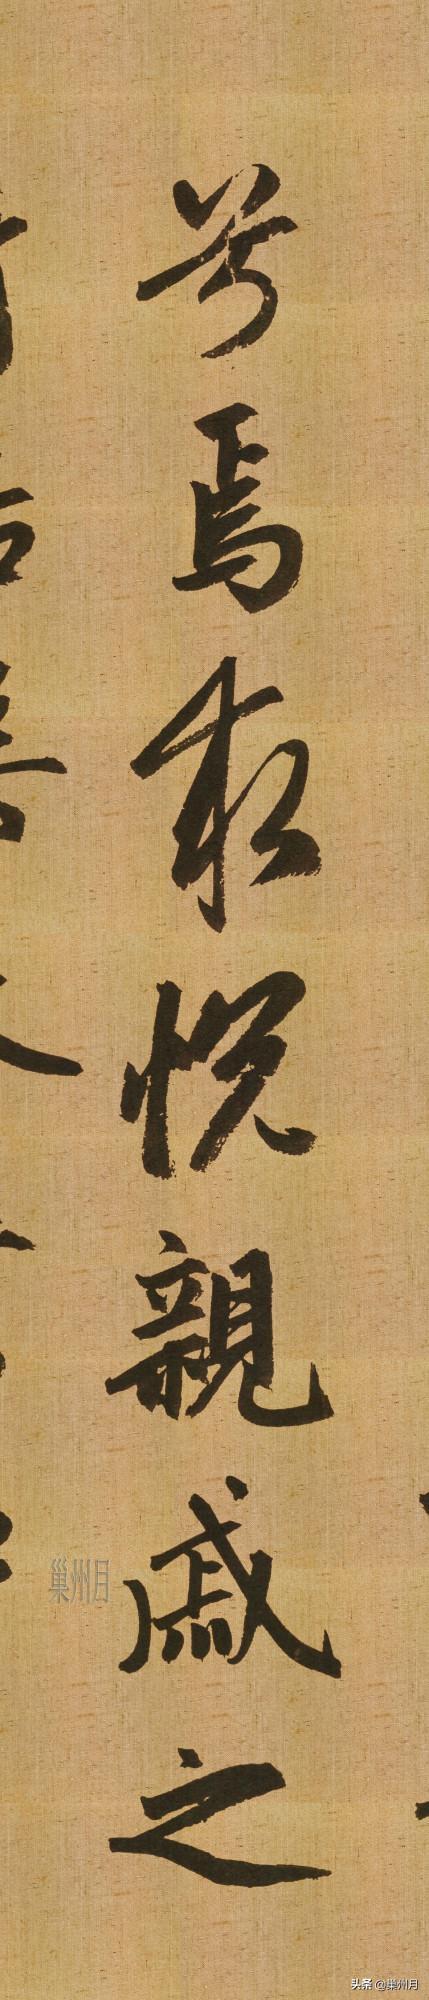 兮焉求悦親戚之
巢州月
头条 @巢州月